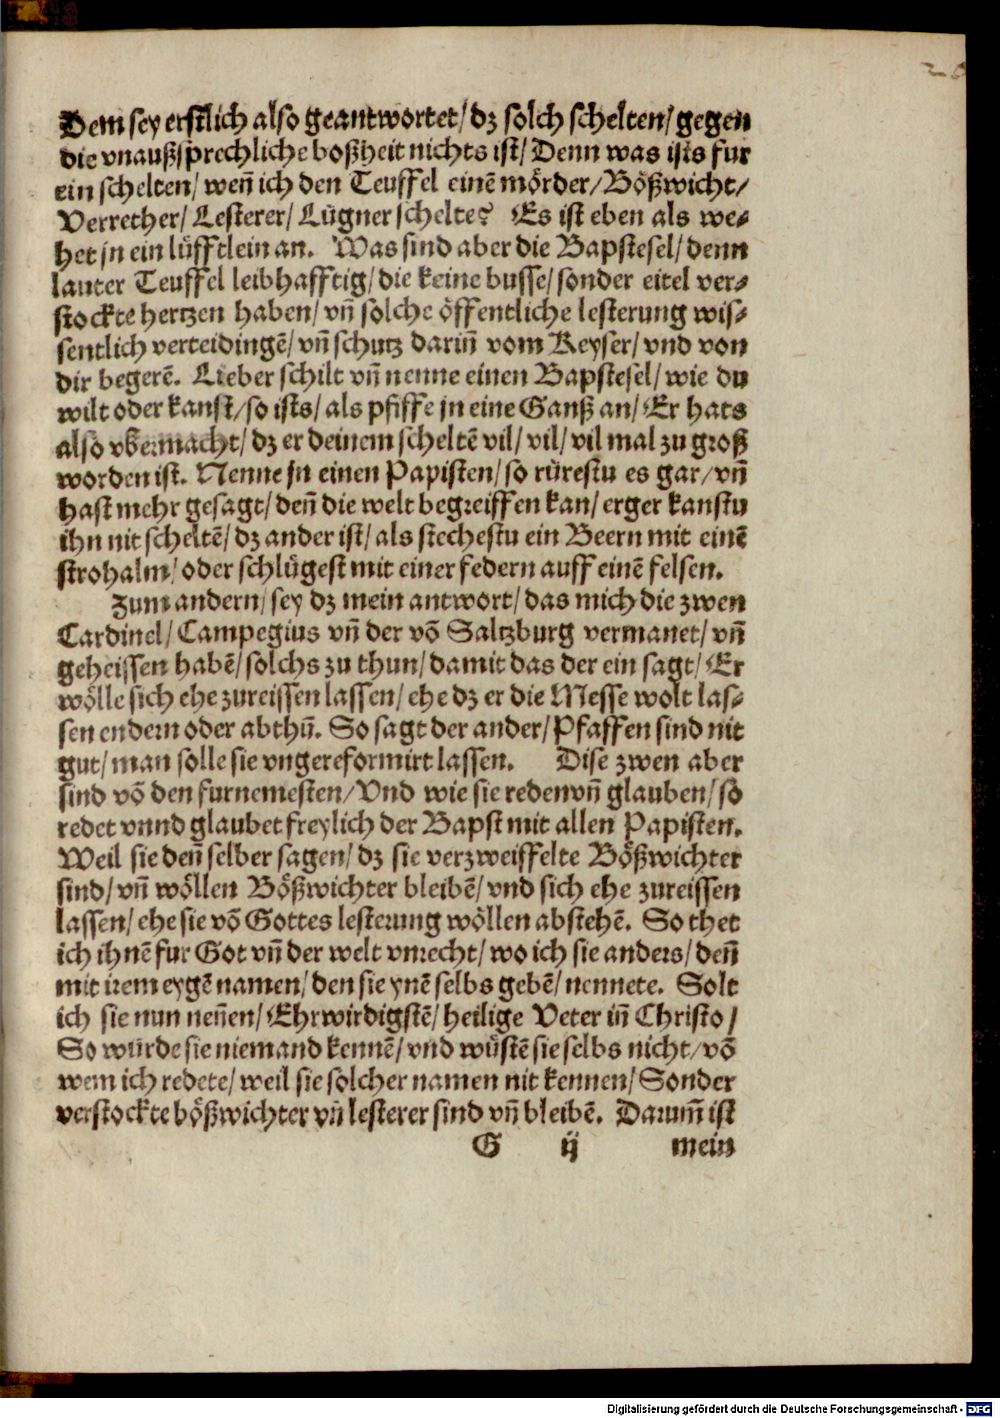 26
Dem sey erstlich also geantwortet/ dz solch schelten/ gegen
die vnaußsprechliche boßheit nichts ist/ Denn was ists fur
ein schelten/ weñ ich den Teuffel einẽ mörder/ Bößwicht/
Verrether/ Lesterer/ Lügner schelte? Es ist eben als we-
het jn ein lüfftlein an. Was sind aber die Bapstesel/ denn
lauter Teuffel leibhafftig/ die keine busse/ sonder eitel ver-
stockte hertzen haben/ vñ solche öffentliche lesterung wis-
sentlich verteidingẽ/ vñ schutz dariñ vom Keyser/ vnd von
dir begerẽ. Lieber schilt vñ nenne einen Bapstesel/ wie du
wilt oder kanst/ so ists/ als pfiffe jn eine Ganß an/ Er hats
also vbermacht/ dz er deinem scheltẽ vil/ vil/ vil mal zu groß
worden ist. Nenne jn einen Papisten/ so rürestu es gar/ vñ
hast mehr gesagt/ deñ die welt begreiffen kan/ erger kanstu
ihn nit scheltẽ/ dz ander ist/ als stechestu ein Beern mit einẽ
strohalm/ oder schlügest mit einer federn auff einẽ felsen.
Zum andern/ sey dz mein antwort/ das mich die zwen
Cardinel/ Campegius vñ der võ Saltzburg vermanet/ vñ
geheissen habẽ/ solchs zu thun/ damit das der ein sagt/ Er
wölle sich ehe zureissen lassen/ ehe dz er die Messe wolt las-
sen endern oder abthũ. So sagt der ander/ Pfaffen sind nit
gut/ man solle sie vngereformirt lassen. Dise zwen aber
sind võ den furnemesten/ Vnd wie sie reden vñ glauben/ so
redet vnnd glaubet freylich der Bapst mit allen Papisten.
Weil sie deñ selber sagen/ dz sie verzweiffelte Bößwichter
sind/ vñ wöllen Bößwichter bleibẽ/ vnd sich ehe zureissen
lassen/ ehe sie võ Gottes lesterung wöllen abstehẽ. So thet
ich ihnẽ fur Got vñ der welt vnrecht/ wo ich sie anders/ deñ
mit irem eygẽ namen/ den sie ynẽ selbs gebẽ/ nennete. Solt
ich sie nun neñen/ Ehrwirdigstẽ/ heilige Veter iñ Christo/
So würde sie niemand kennẽ/ vnd wüstẽ sie selbs nicht/ võ
wem ich redete/ weil sie solcher namen nit kennen/ Sonder
verstockte bößwichter vñ lesterer sind vñ bleibẽ. Darum̃ ist
G ij mein
Digitalisierung gefördert durch die Deutsche Forschungsgemeinschaft - DFG